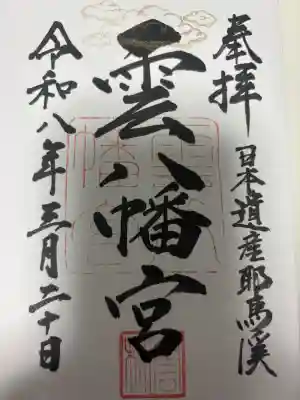 奉拝
日本遺産耶馬溪
雲八幡宮
令和八年三月二十日